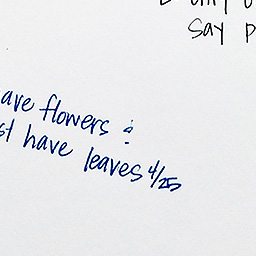 say p
ave flowers &
st have leaves 4/25